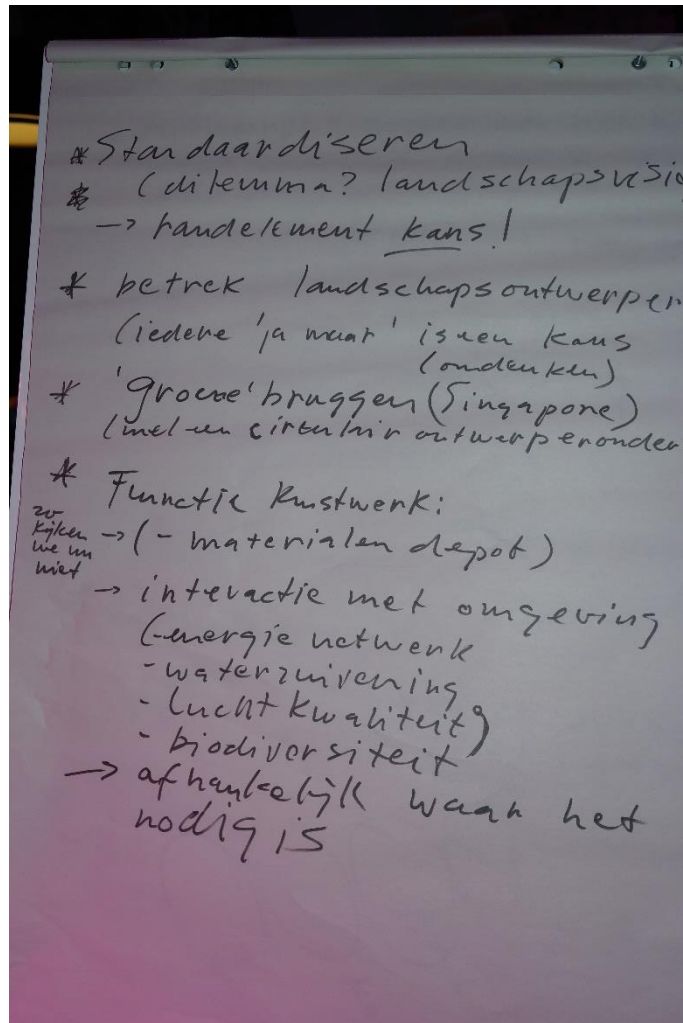 * Standaardiseren
* (dilemma? landschapsvisi
→ randelement kans!
* betrek landschapsontwerper
(iedere 'ja maar' is een kans
(omdenken)
* 'groene' bruggen (Singapore)
(met een circulair ontwerper onder
* Functie kunstwerk:
zo
kijken
we nu
niet
→ (- materialen depot)
→ interactie met omgeving
(-energie netwerk
- waterzuivering
- luchtkwaliteit)
- biodiversiteit
→ afhankelijk waar het
nodig is